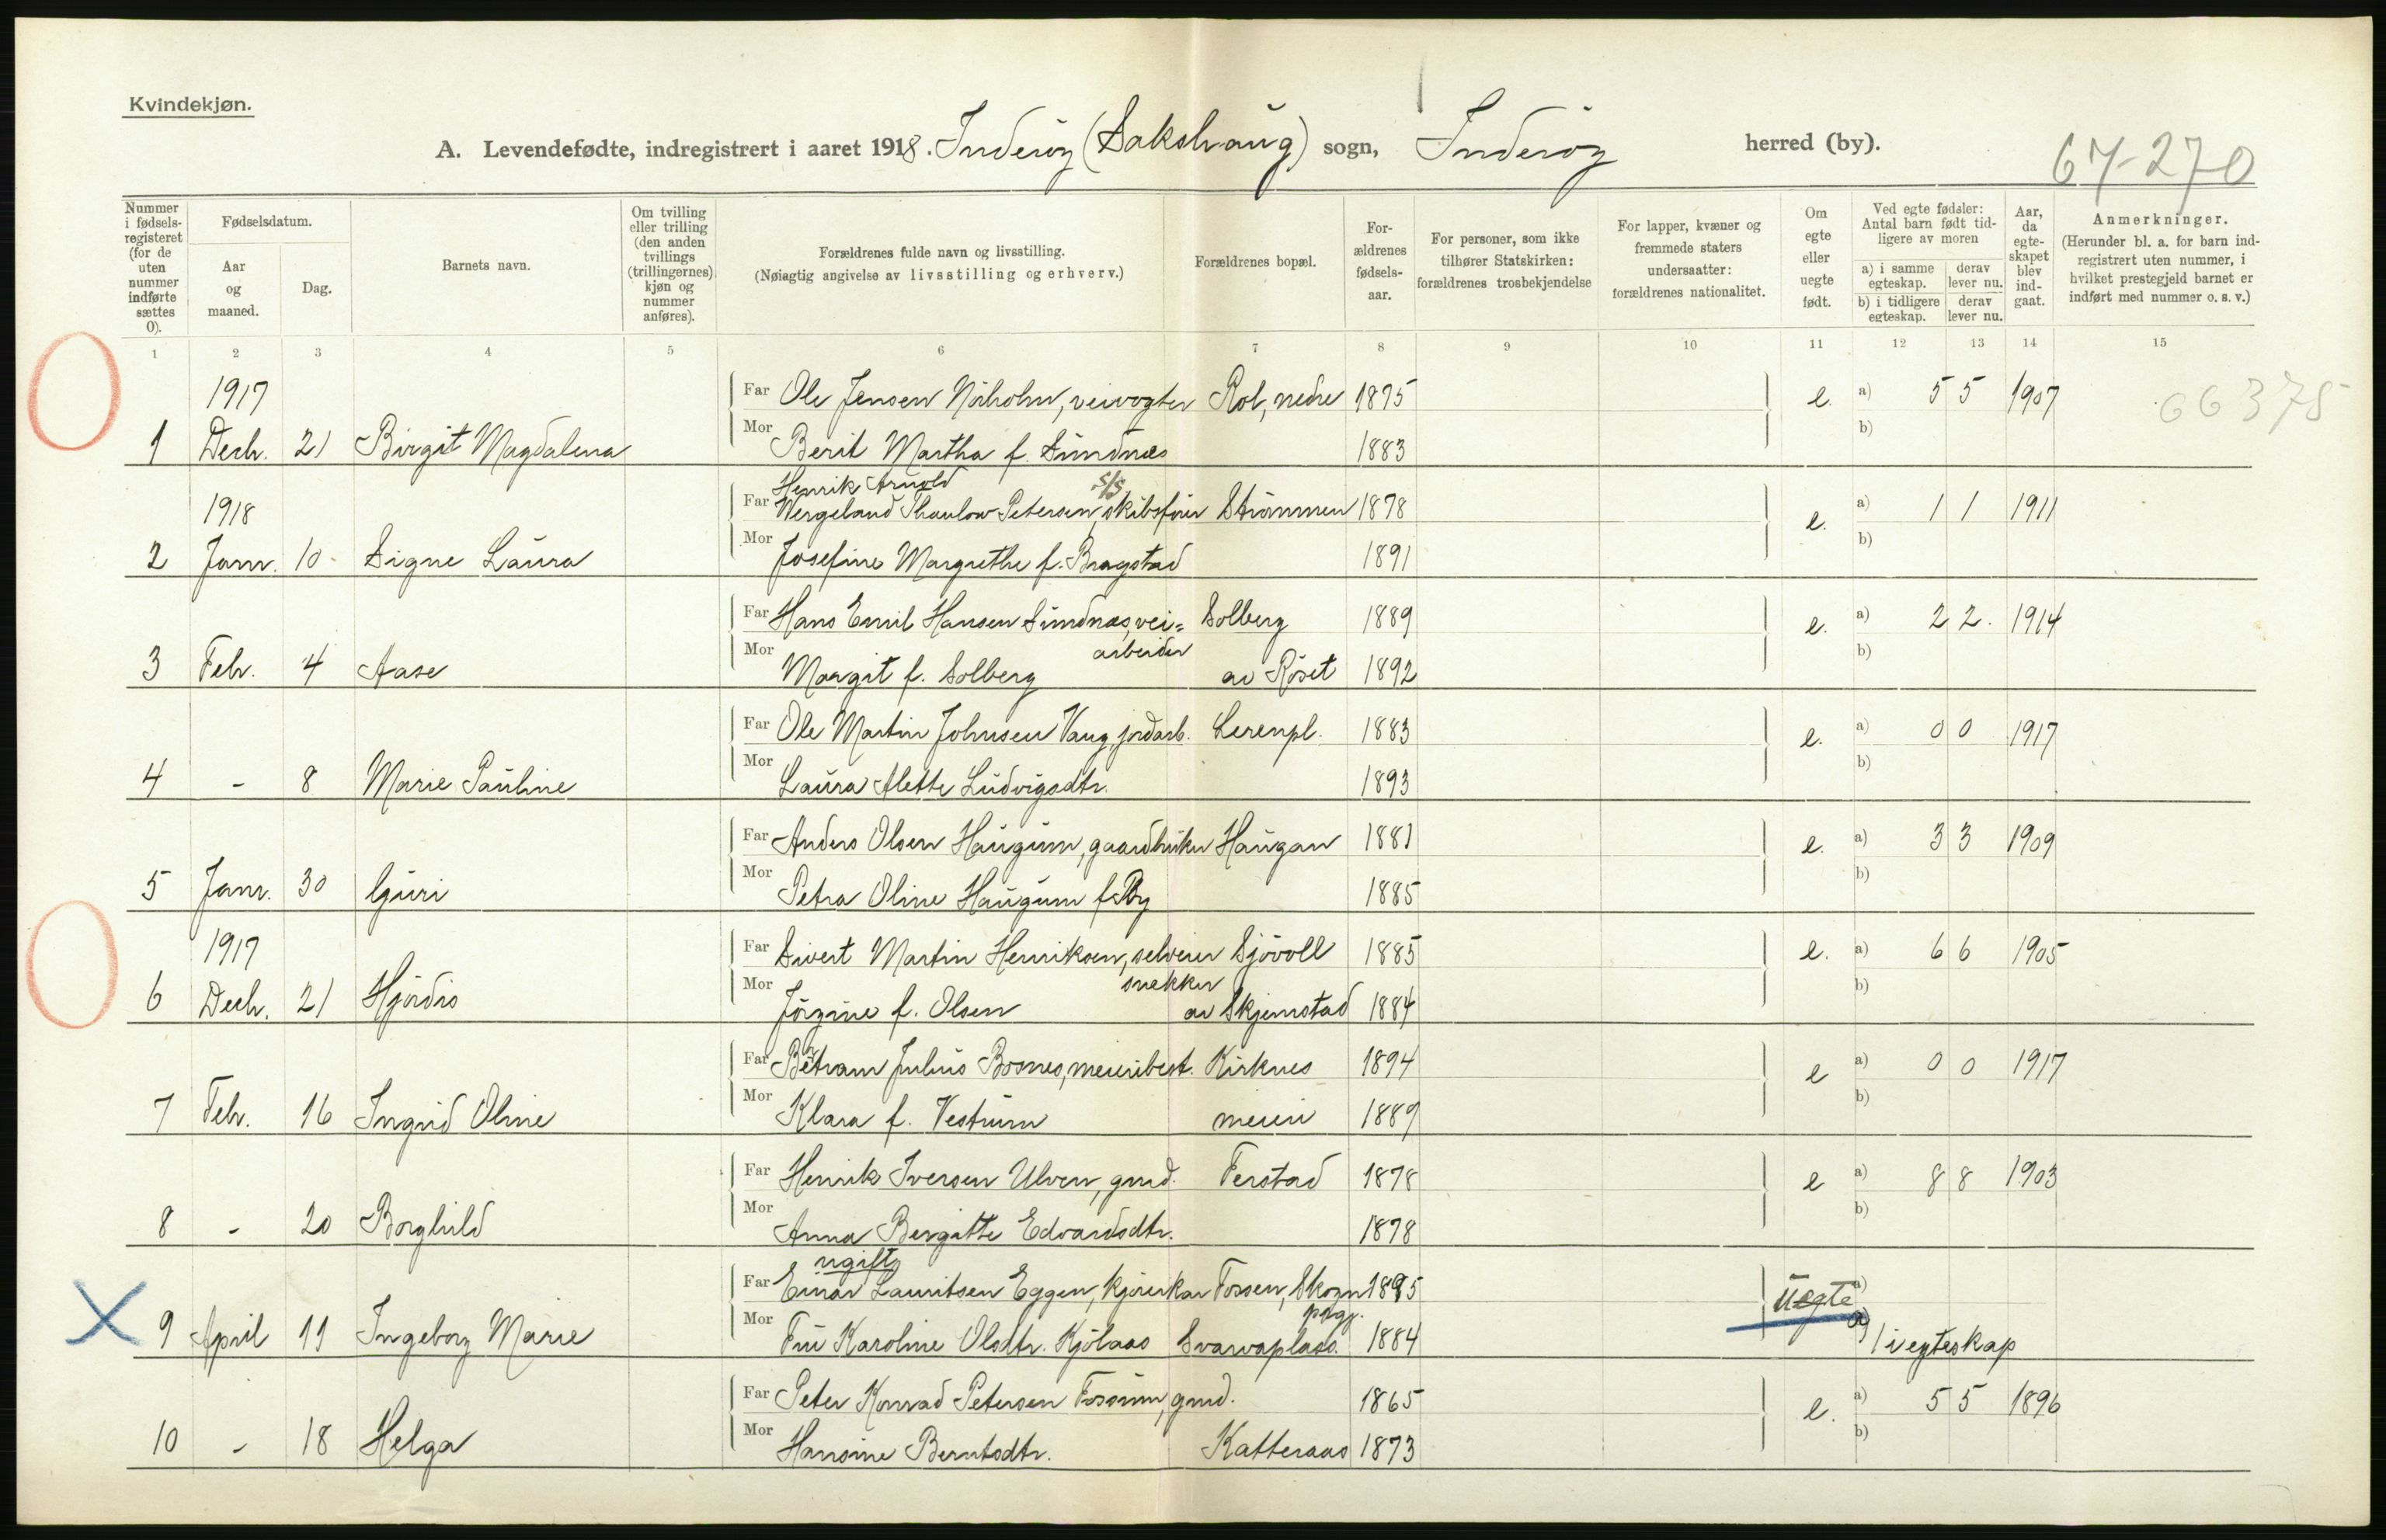 Kvindekjøn.
A. Levendefødte, indregistrert i aaret 1918. Inderöy (Sakshaug) sogn, Inderöy herred (by).
67-270
Nummer i fødselsregisteret (for de uten nummer indførte sættes 0).
Fødselsdatum.
Aar og maaned.
Dag.
Barnets navn.
Om tvilling eller trilling (den anden tvillings (trillingernes) kjøn og nummer anføres).
Forældrenes fulde navn og livsstilling.
(Nøiagtig angivelse av livsstilling og erhverv.)
Forældrenes bopæl.
Forældrenes fødselsaar.
For personer, som ikke tilhører Statskirken: forældrenes trosbekjendelse
For lapper, kvæner og fremmede staters undersaatter: forældrenes nationalitet.
Om egte eller uegte født.
Ved egte fødsler: Antal barn født tidligere av moren
a) i samme egteskap. derav lever nu.
b) i tidligere egteskap. derav lever nu.
Aar, da egteskapet blev indgaat.
Anmerkninger.
(Herunder bl. a. for barn indregistrert uten nummer, i hvilket prestegjeld barnet er indført med nummer o. s. v.)
1 2 3 4 5 6 7 8 9 10 11 12 13 14 15
1917 Far Ole Jensen Nörholm, veivogter Rol, nedre 1875 e. a) 5 5 1907 66375
1 Decb. 21 Birgit Magdalena Mor Berit Martha f. Sundnæs 1883 b)
Henrik Arnold S/S
1918 Far Wergeland Thaulow Petersen, skibsförer Strömmen 1878 e. a) 1 1 1911
2 Janr. 10 Signe Laura Mor Josefine Margrethe f. Bragstad 1891 b)
Far Hans Emil Hansen Sundnæs, vei= Solberg 1889 e. a) 2 2. 1914
arbeider
3 Febr. 4 Aase Mor Margit f. Solberg av Röset 1892 b)
Far Ole Martin Johnsen Vang, jordarb. Lerenpl. 1883 e. a) 0 0 1917
4 - 8 Marie Pauline Mor Laura Alette Ludvigsdtr. 1893 b)
Far Anders Olsen Haugum, gaardbruker Haugan 1881 e. a) 3 3 1909
5 Janr. 30 Guri Mor Petra Oline Haugum f. By 1885 b)
1917 Far Sivert Martin Henriksen, selveier Sjövoll 1885 e. a) 6 6 1905
snekker
6 Decb. 21 Hjördis Mor Jörgine f. Olsen av Skjemstad 1884 b)
Far Betram Julius Bosnes, meieribest. Kirknes 1894 e a) 0 0 1917
7 Febr. 16 Ingrid Oline Mor Klara f. Vestrum meieri 1889 b)
Far Henrik Iversen Ulven, gmd. Ferstad 1878 e a) 8 8 1903
8 - 20 Borghild Mor Anna Bergitte Edvardsdtr. 1878 b)
ugift
Far Einar Lauritsen Eggen, kjörekar Fossen, Skogn 1895 Uegte a)
prgj.
9 April 11 Ingeborg Marie Mor Fru Karoline Olsdtr. Kjölaas Svarvaplass. 1884 a) 1 i egteskap
Far Peter Konrad Petersen Fossum, gmd. 1865 e. a) 5 5 1896
10 - 18 Helga Mor Hansine Berntsdtr. Katteraas 1873 b)